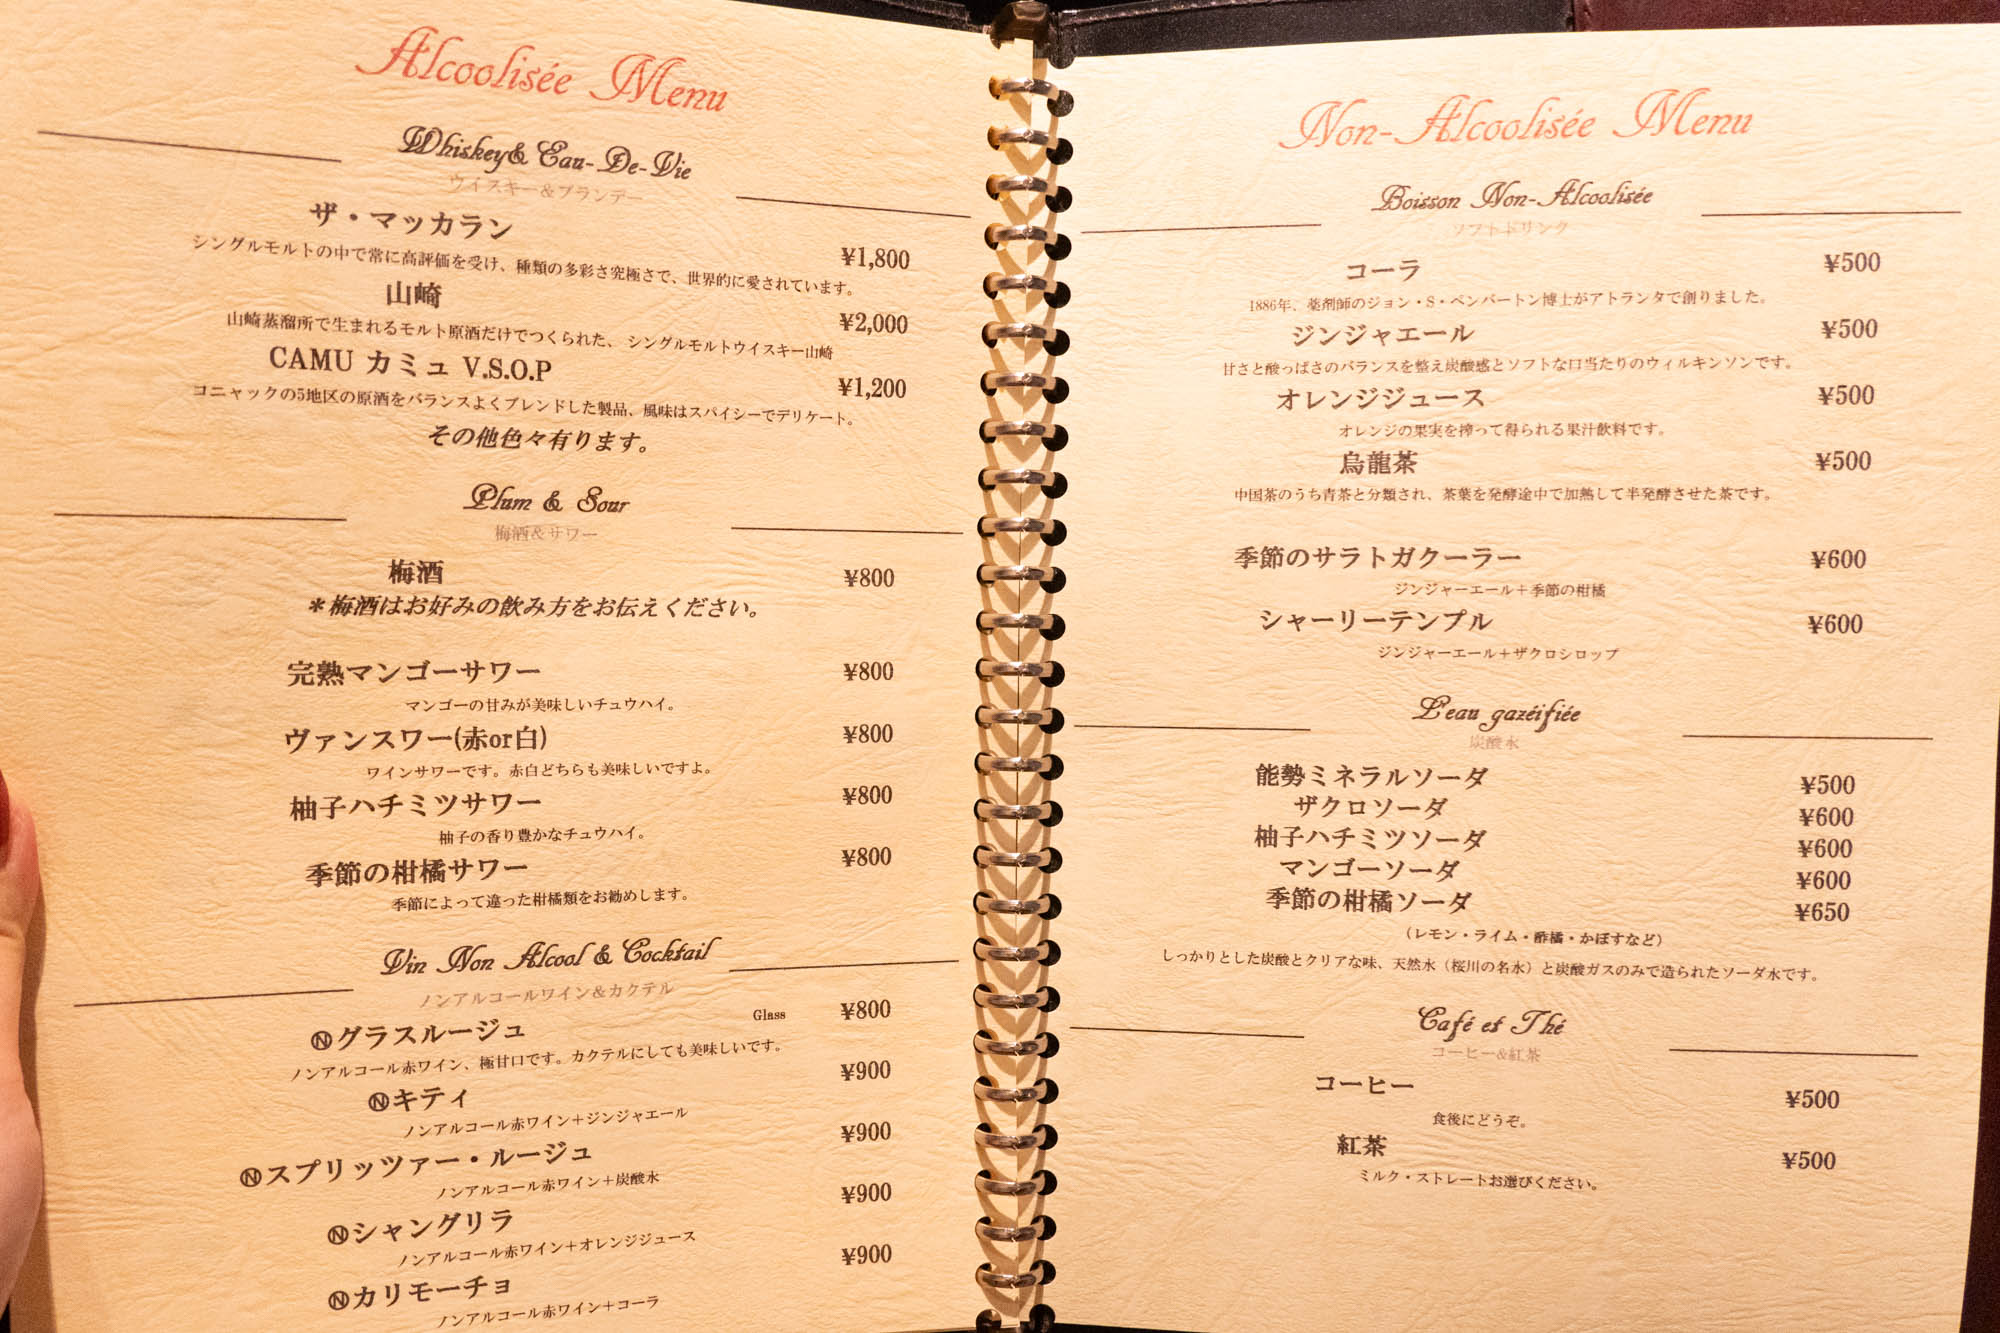 Alcoolisée Menu
Whiskey& Eau-De-Vie
ウイスキー＆ブランデー
ザ・マッカラン ¥1,800
シングルモルトの中で常に高評価を受け、種類の多彩さ究極さで、世界的に愛されています。
山崎 ¥2,000
山崎蒸溜所で生まれるモルト原酒だけでつくられた、シングルモルトウイスキー山崎
CAMU カミュ V.S.O.P ¥1,200
コニャックの5地区の原酒をバランスよくブレンドした製品、風味はスパイシーでデリケート。
その他色々有ります。
Plum & Sour
梅酒＆サワー
梅酒 ¥800
＊梅酒はお好みの飲み方をお伝えください。
完熟マンゴーサワー ¥800
マンゴーの甘みが美味しいチュウハイ。
ヴァンスワー(赤or白) ¥800
ワインサワーです。赤白どちらも美味しいですよ。
柚子ハチミツサワー ¥800
柚子の香り豊かなチュウハイ。
季節の柑橘サワー ¥800
季節によって違った柑橘類をお勧めします。
Vin Non Alcool & Cocktail
ノンアルコールワイン＆カクテル
Ⓝグラスルージュ Glass ¥800
ノンアルコール赤ワイン、極甘口です。カクテルにしても美味しいです。
Ⓝキティ ¥900
ノンアルコール赤ワイン＋ジンジャエール
Ⓝスプリッツァー・ルージュ ¥900
ノンアルコール赤ワイン＋炭酸水
Ⓝシャングリラ ¥900
ノンアルコール赤ワイン＋オレンジジュース
Ⓝカリモーチョ ¥900
ノンアルコール赤ワイン＋コーラ
Non-Alcoolisée Menu
Boisson Non-Alcoolisée
ソフトドリンク
コーラ ¥500
1886年、薬剤師のジョン・S・ペンバートン博士がアトランタで創りました。
ジンジャエール ¥500
甘さと酸っぱさのバランスを整え炭酸感とソフトな口当たりのウィルキンソンです。
オレンジジュース ¥500
オレンジの果実を搾って得られる果汁飲料です。
烏龍茶 ¥500
中国茶のうち青茶と分類され、茶葉を発酵途中で加熱して半発酵させた茶です。
季節のサラトガクーラー ¥600
ジンジャーエール＋季節の柑橘
シャーリーテンプル ¥600
ジンジャーエール＋ザクロシロップ
L'eau gazéifiée
炭酸水
能勢ミネラルソーダ ¥500
ザクロソーダ ¥600
柚子ハチミツソーダ ¥600
マンゴーソーダ ¥600
季節の柑橘ソーダ ¥650
（レモン・ライム・酢橘・かぼすなど）
しっかりとした炭酸とクリアな味、天然水（桜川の名水）と炭酸ガスのみで造られたソーダ水です。
Café et Thé
コーヒー&紅茶
コーヒー ¥500
食後にどうぞ。
紅茶 ¥500
ミルク・ストレートお選びください。